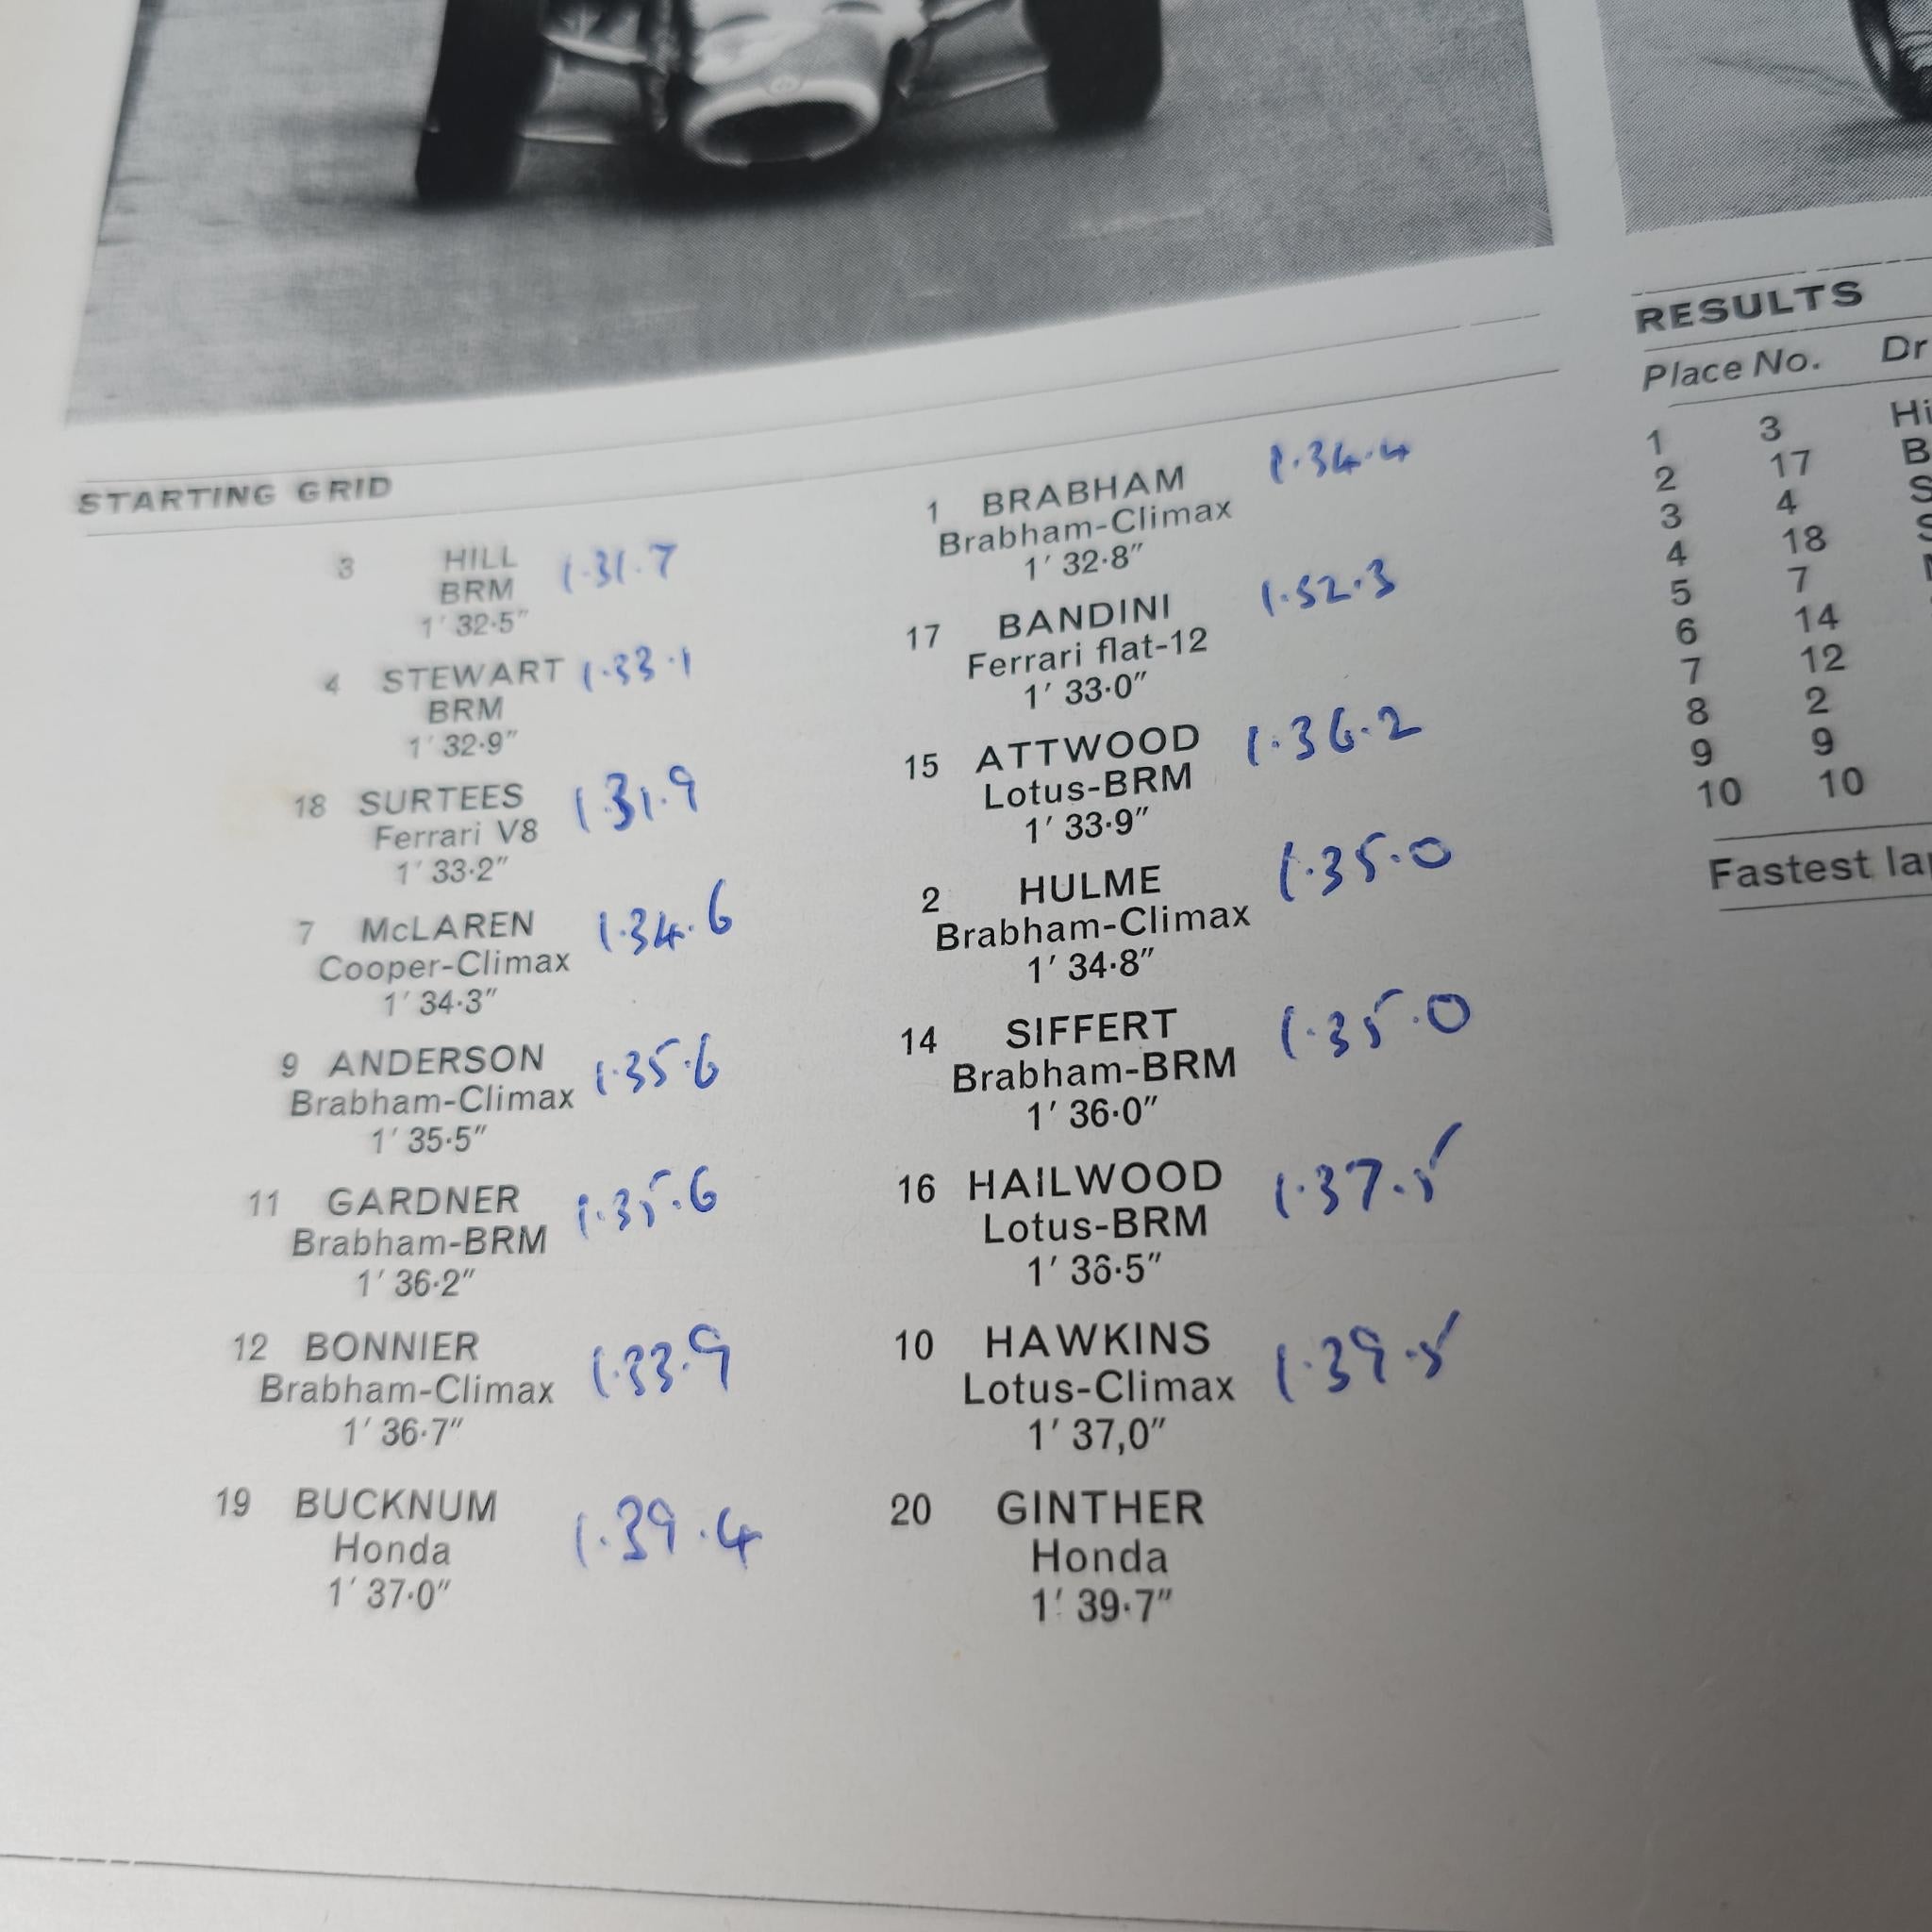 STARTING GRID
3 HILL 1.31.7
BRM
1′ 32·5″
4 STEWART 1.33.1
BRM
1′ 32·9″
18 SURTEES 1.31.9
Ferrari V8
1′ 33·2″
7 McLAREN 1.34.6
Cooper-Climax
1′ 34·3″
9 ANDERSON 1.35.6
Brabham-Climax
1′ 35·5″
11 GARDNER 1.35.6
Brabham-BRM
1′ 36·2″
12 BONNIER 1.33.9
Brabham-Climax
1′ 36·7″
19 BUCKNUM 1.39.4
Honda
1′ 37·0″
1 BRABHAM 1.34.4
Brabham-Climax
1′ 32·8″
17 BANDINI 1.52.3
Ferrari flat-12
1′ 33·0″
15 ATTWOOD 1.36.2
Lotus-BRM
1′ 33·9″
2 HULME 1.35.0
Brabham-Climax
1′ 34·8″
14 SIFFERT 1.35.0
Brabham-BRM
1′ 36·0″
16 HAILWOOD 1.37.5
Lotus-BRM
1′ 36·5″
10 HAWKINS 1.39.5
Lotus-Climax
1′ 37,0″
20 GINTHER
Honda
1′ 39·7″
RESULTS
Place No. Dr
1 3 Hi
2 17 B
3 4 S
4 18 S
5 7
6 14
7 12
8 2
9 9
10 10
Fastest la